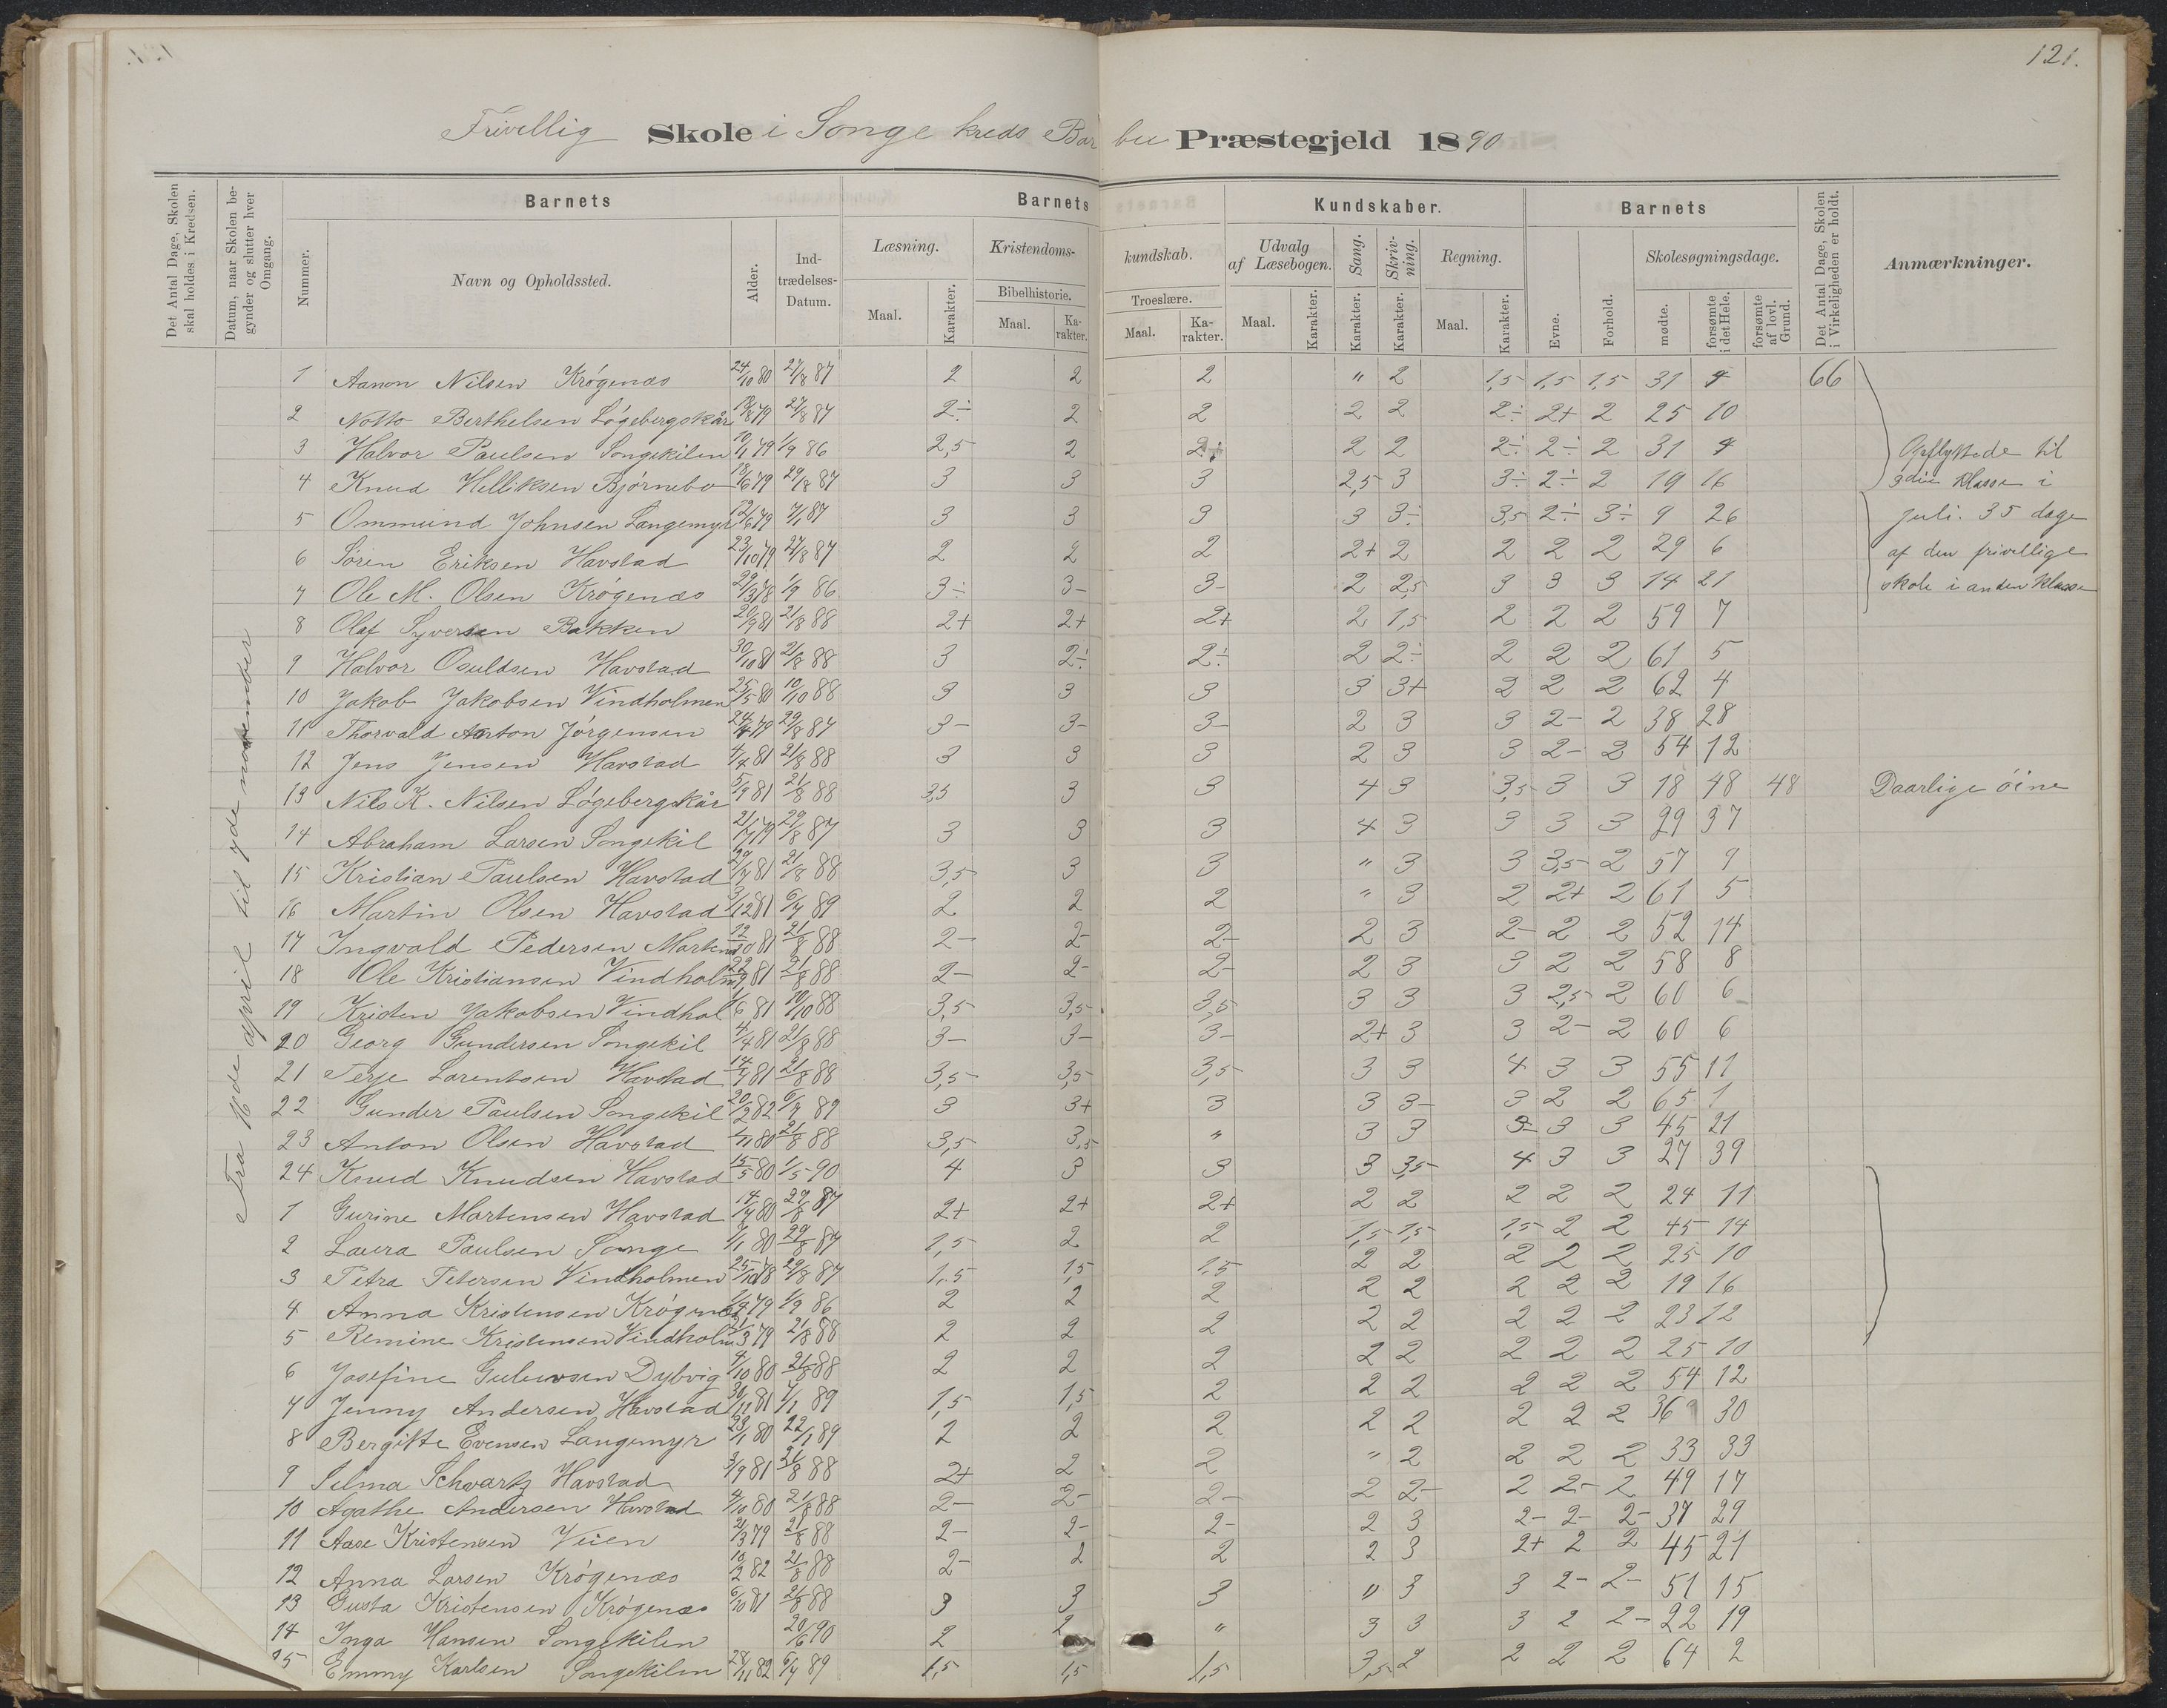 121.
Frivillig Skole i Songe kreds Barbu Præstegjeld 1890
Det Antal Dage, Skolen skal holdes i Kredsen.
Datum, naar Skolen begynder og slutter hver Omgang.
Barnets
Nummer.
Navn og Opholdssted.
Alder.
Indtrædelses-Datum.
Barnets Kundskaber.
Læsning. Maal. Karakter.
Kristendoms-kundskab.
Bibelhistorie. Maal. Karakter.
Troeslære. Maal. Karakter.
Udvalg af Læsebogen. Maal. Karakter.
Sang. Karakter.
Skrivning. Karakter.
Regning. Maal. Karakter.
Barnets
Evne. Forhold.
Skolesøgningsdage.
mødte. forsømte i det Hele. forsømte af lovl. Grund.
Det Antal Dage, Skolen i Virkeligheden er holdt.
Anmærkninger.
Fra 16de april til 7de november
1 Aanon Nilsen Krøgenæs 24/10 80 27/8 87 2 2 2 " 2 1,5 1,5 1,5 31 4 66
2 Notto Berthelsen Løgebergskår 27/8 87 2÷ 2 2 2 2 2÷ 2+ 2 25 10
3 Halvor Paulsen Songekilen 1/9 86 2,5 2 2÷ 2 2 2÷ 2÷ 2 31 4
4 Knud Helliksen Bjørnebo 18/6 79 29/8 87 3 3 3 2,5 3 3÷ 2÷ 2 19 16
5 Ommund Johnsen Langemyr 7/1 87 3 3 3 3 3÷ 3,5 2÷ 3÷ 9 26
6 Søren Eriksen Havstad 23/10 79 27/8 87 2 2 2 2+ 2 2 2 2 29 6
7 Ole M. Olsen Krøgenæs 29/3 78 1/9 86 3÷ 3- 3- 2 2,5 3 3 3 14 21
8 Olaf Syversen Bakken 20/9 81 21/8 88 2+ 2+ 2+ 2 1,5 2 2 2 59 7
9 Halvor Osuldsen Havstad 30/10 81 21/8 88 3 2÷ 2÷ 2 2÷ 2 2 2 61 5
10 Jakob Jakobsen Vindholmen 25/5 80 10/10 88 3 3 3 3 3+ 2 2 2 62 4
11 Thorvald Anton Jørgensen 29/8 87 3- 3- 3- 2 3 3 2- 2 38 28
12 Jens Jensen Havstad 4/4 81 21/8 88 3 3 3 2 3 3 2- 2 54 12
13 Nils K. Nilsen Løgebergskår 5/9 81 21/8 88 3,5 3 3 4 3 3,5 3 3 18 48 48 Daarlige øine
14 Abraham Larsen Songekil 29/8 87 3 3 3 4 3 3 3 3 29 37
15 Kristian Paulsen Havstad 21/8 88 3,5 3 3 " 3 3 3,5 2 57 9
16 Martin Olsen Havstad 3/12 81 6/4 89 2 2 2 " 3 2 2+ 2 61 5
17 Ingvald Pedersen 12/10 81 21/8 88 2- 2- 2- 2 3 2- 2 2 52 14
18 Ole Kristiansen Vindholm 21/8 88 2- 2- 2- 2 3 3 2 2 58 8
19 Kristen Jakobsen Vindhol 1/6 81 10/10 88 3,5 3,5 3,5 3 3 3 2,5 2 60 6
20 Georg Gundersen Songekil 4/4 81 21/8 88 3- 3- 3- 2+ 3 3 2- 2 60 6
21 Terje Lorentsen Havstad 14/4 81 21/8 88 3,5 3,5 3,5 3 3 4 3 3 55 11
22 Gunder Paulsen Songekil 20/2 82 6/4 89 3 3+ 3 3 3- 3 2 2 65 1
23 Anton Olsen Havstad 1/11 80 21/8 88 3,5 3,5 " 3 3 3- 3 3 45 21
24 Knud Knudsen Havstad 15/5 80 1/5 90 4 3 3 3 3,5 4 3 3 27 39
Opflyttede til
3die Klasse i
juli. 35 dage
af den frivillige
skole i anden Klasse
1 Gurine Martensen Havstad 14/4 80 29/8 87 2+ 2+ 2+ 2 2 2 2 2 24 11
2 Laura Paulsen Songe 7/1 80 29/8 87 1,5 2 2 1,5 1,5 1,5 2 2 45 14
3 Petra Petersen Vindholmen 25/10 78 29/8 87 1,5 1,5 1,5 2 2 2 2 2 25 10
4 Anna Kristensen Krøgenæs 1/9 86 2 2 2 2 2 2 2 2 19 16
5 Remine Kristensen Vindholm 21/8 88 2 2 2 2 2 2 2 2 23 12
6 Josefine Dybvig 4/10 80 21/8 88 2 2 2 2 2 2 2 2 25 10
7 Jenny Andersen Havstad 30/11 81 7/1 89 1,5 1,5 2 2 2 2 2 2 54 12
8 Bergitte Evensen Langemyr 23/1 80 22/1 89 2 2 2 2 2 2 2 2 36 30
9 Selma Schvartz Havstad 3/9 81 21/8 88 2+ 2 2 " 2 2 2 2 33 33
10 Agathe Andersen Havstad 4/10 80 21/8 88 2- 2- 2- 2 2- 2 2- 2 49 17
11 Aase Kristensen Vien 21/3 79 21/8 88 2- 2- 2- 2 3 2- 2- 2- 37 29
12 Anna Larsen Krøgenæs 10/2 82 21/8 88 2- 2 2 2 3 2+ 2 2 45 21
13 Gusta Kristensen Krøgenæs 6/10 81 21/8 88 3 3 3 " 3 3 2- 2- 51 15
14 Inga Hansen Songekilen 20/6 90 2 2 " 3 3 3 2 2- 22 19
15 Emmy Karlsen Songekilen 28/11 82 6/4 89 1,5 1,5 1,5 3,5 2 2 2 2 64 2